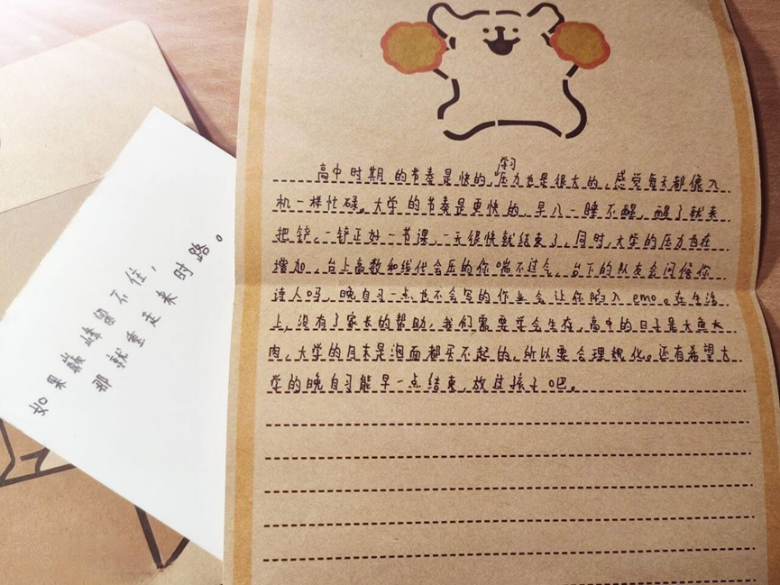 如果巅峰留不住，
那就重走来时路。
学习
高中时期的节奏是快的，压力也是很大的，感觉每天都像人
机一样忙碌。大学的节奏是更快的，早八一睡不醒，醒了就来
把铲，一铲正好一节课，一天很快就结束了，同时，大学的压力自在
增加，台上高数和线代会压的你喘不过气，台下的队友会问候你
诗人吗，晚自习一点也不会写的作业会让你陷入emo。在生活
上，没有了家长的帮助，我们需要学会生存，高中的日子是大鱼大
肉，大学的月末是泡面都买不起的，所以要合理规化。还有希望大
学的晚自习能早一点结束，放过孩子吧。